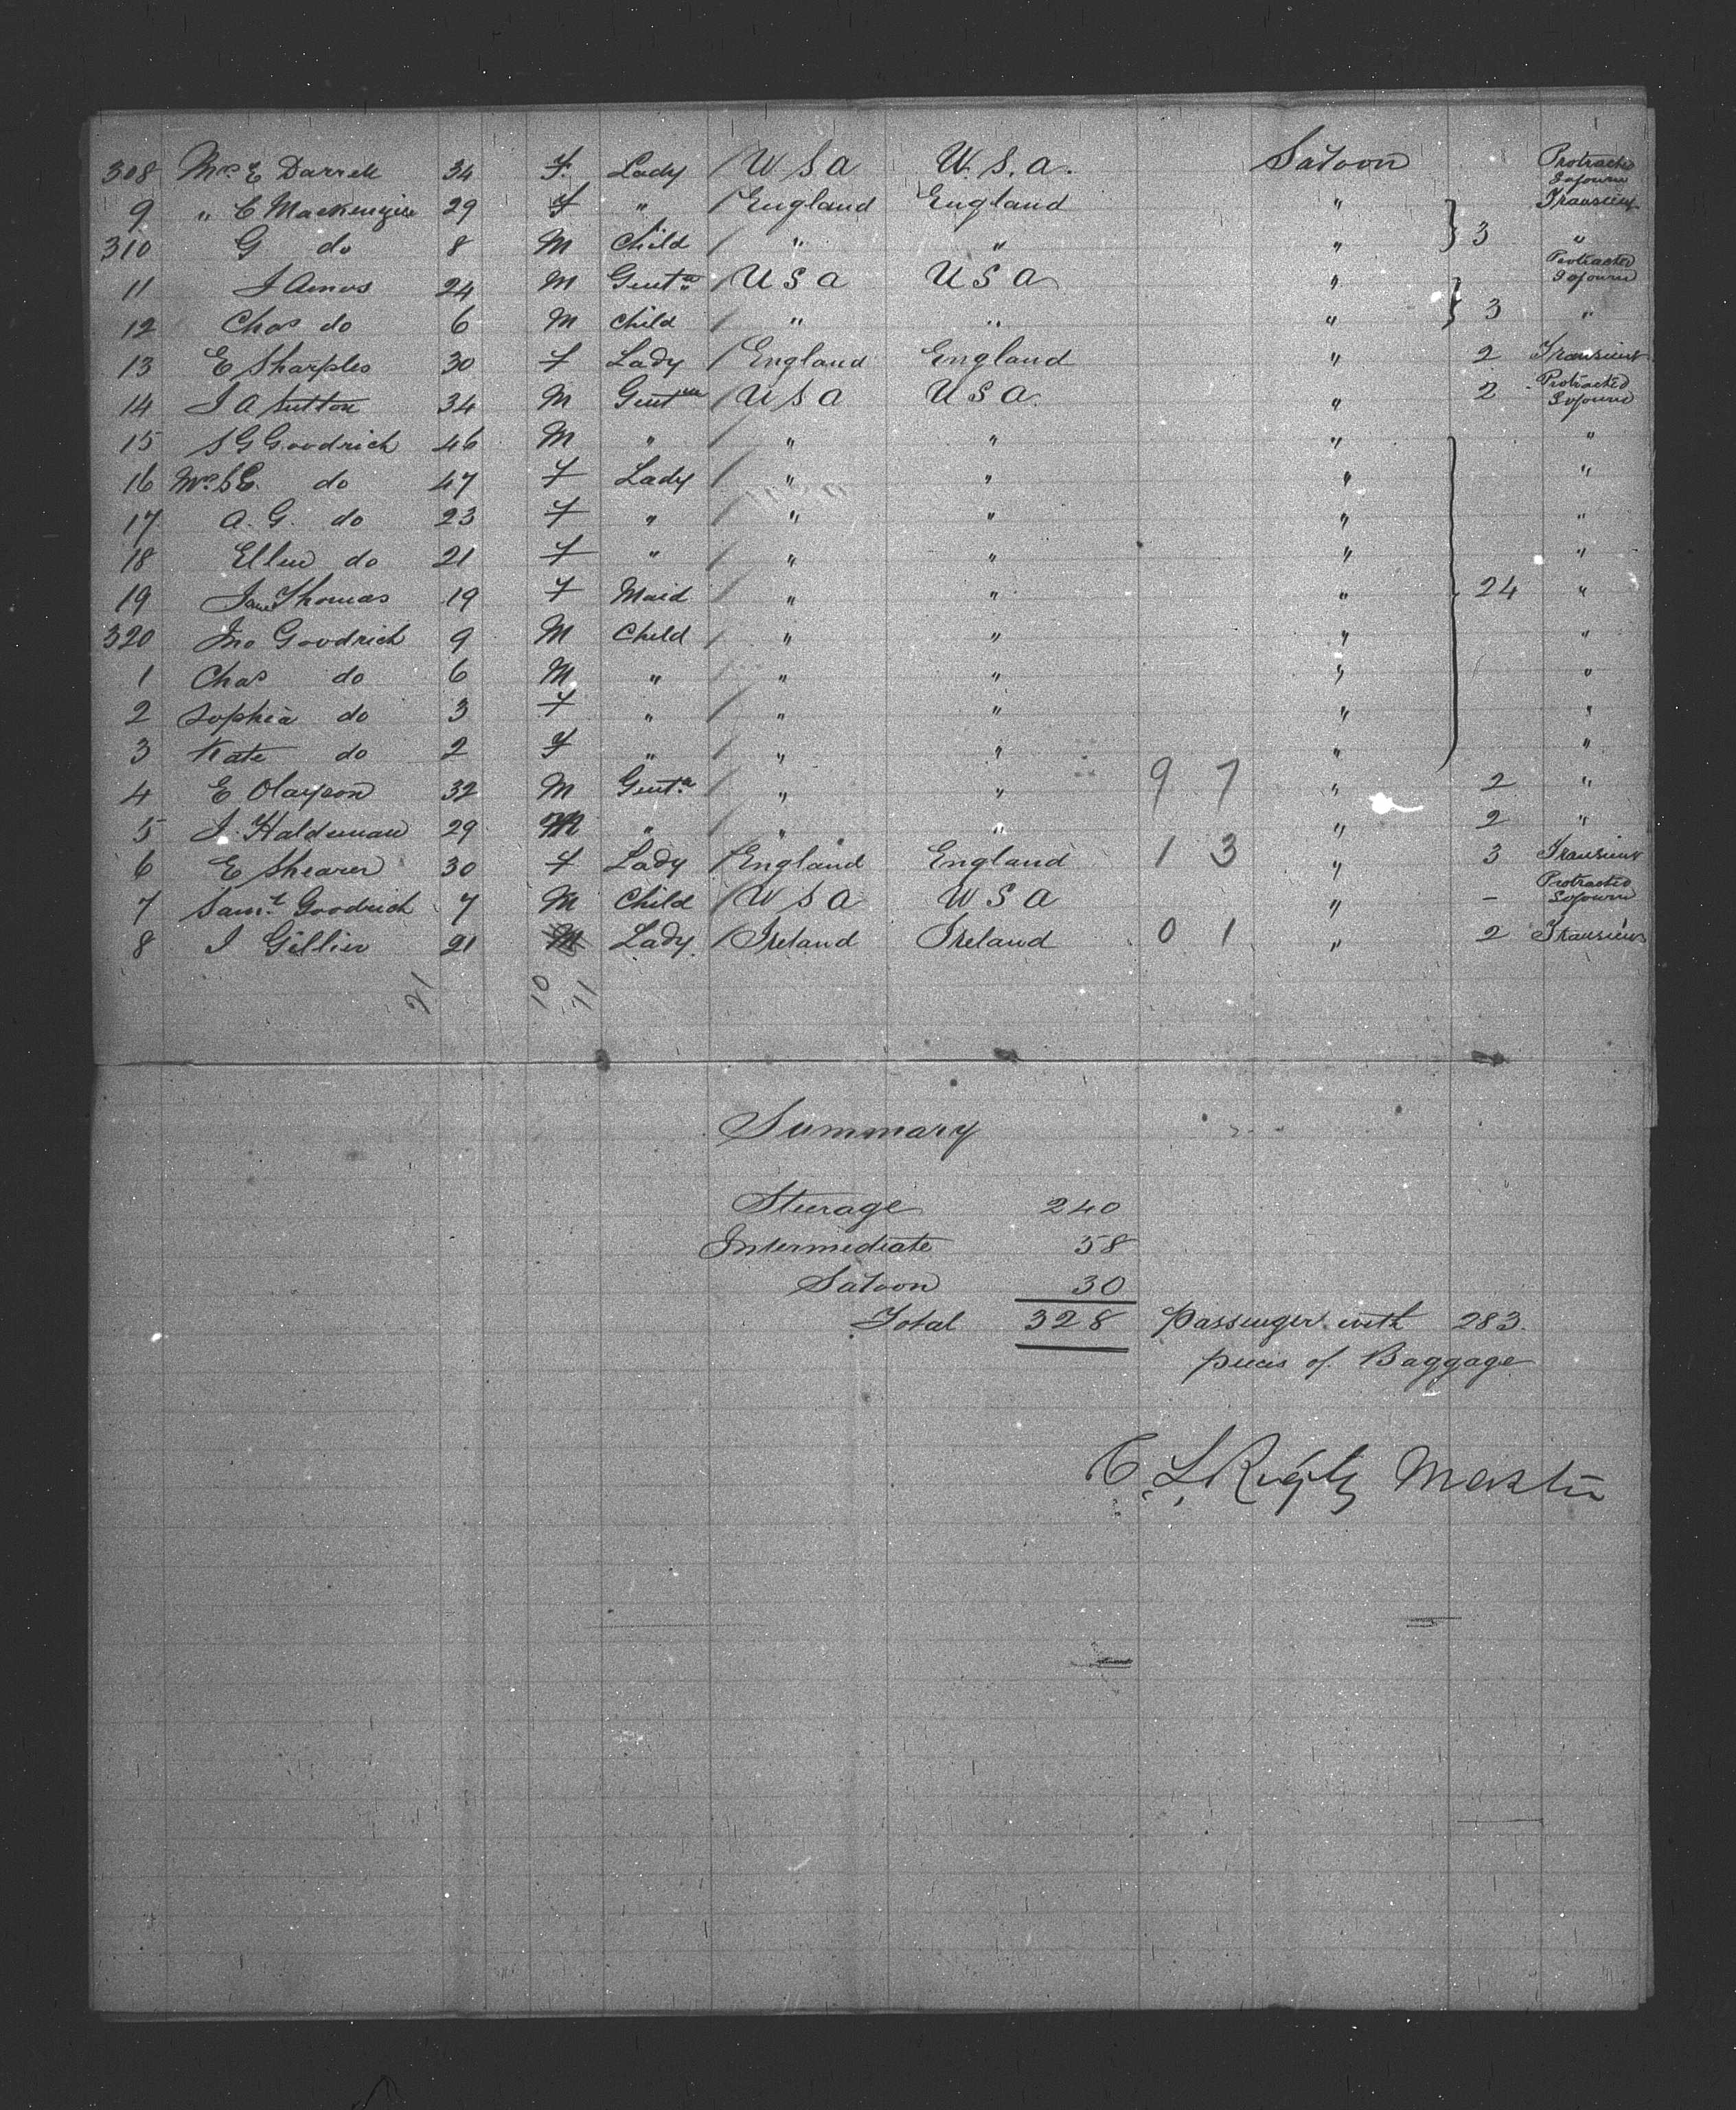 308 Mrs. E Darrell 34 F. Lady / U S A U. S. A. Saloon Protracted Sojourn
9 " C Mackenzie 29 F " / England England " } 3 Transient
310 G do 8 M Child / " " " "
11 J Amos 24 M Gentn / U S A U S A " } 3 Protracted Sojourn
12 Chas do 6 M Child / " " " "
13 E Sharples 30 F Lady / England England " 2 Transient
14 J A Sutton 34 M Gentman / U S A U S A. " 2 Protracted Sojourn
15 S G Goodrich 46 M " / " " " "
16 Mrs S E. do 47 F Lady / " " " "
17 A. G. do 23 F " / " " " "
18 Ellen do 21 F " / " " " "
19 Jane Thomas 19 F Maid / " " " } 24 "
320 Jno Goodrich 9 M Child / " " " "
1 Chas do 6 M " / " " " "
2 Sophia do 3 F " / " " " "
3 Kate do 2 F " / " " " "
4 E 32 M Gentn / " " 9 7 " 2 "
5 J. Haldeman 29 M " / " " " 2 "
6 E Shearer 30 F Lady / England England 1 3 " 3 Transient
7 Saml Goodrich 7 M Child / U S A U S A " – Protracted Sojourn
8 J Gillier 21 M Lady. / Ireland Ireland 0 1 " 2 Transient
21 10 11
Summary
Sturage 240
Intermediate 58
Saloon 30
Total 328 Passenger with 283.
pieces of Baggage
C. L. Rigby Master